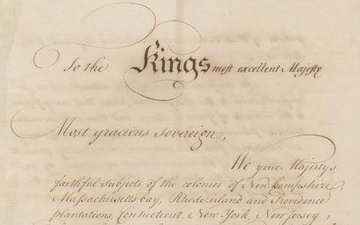 To the Kings most excellent Majesty
Most gracious Sovereign,
We your Majesty's
faithful subjects of the colonies of New-hampshire,
Massachusetts-bay, Rhode-island and Providence
plantations, Connecticut, New-York, New Jersey,